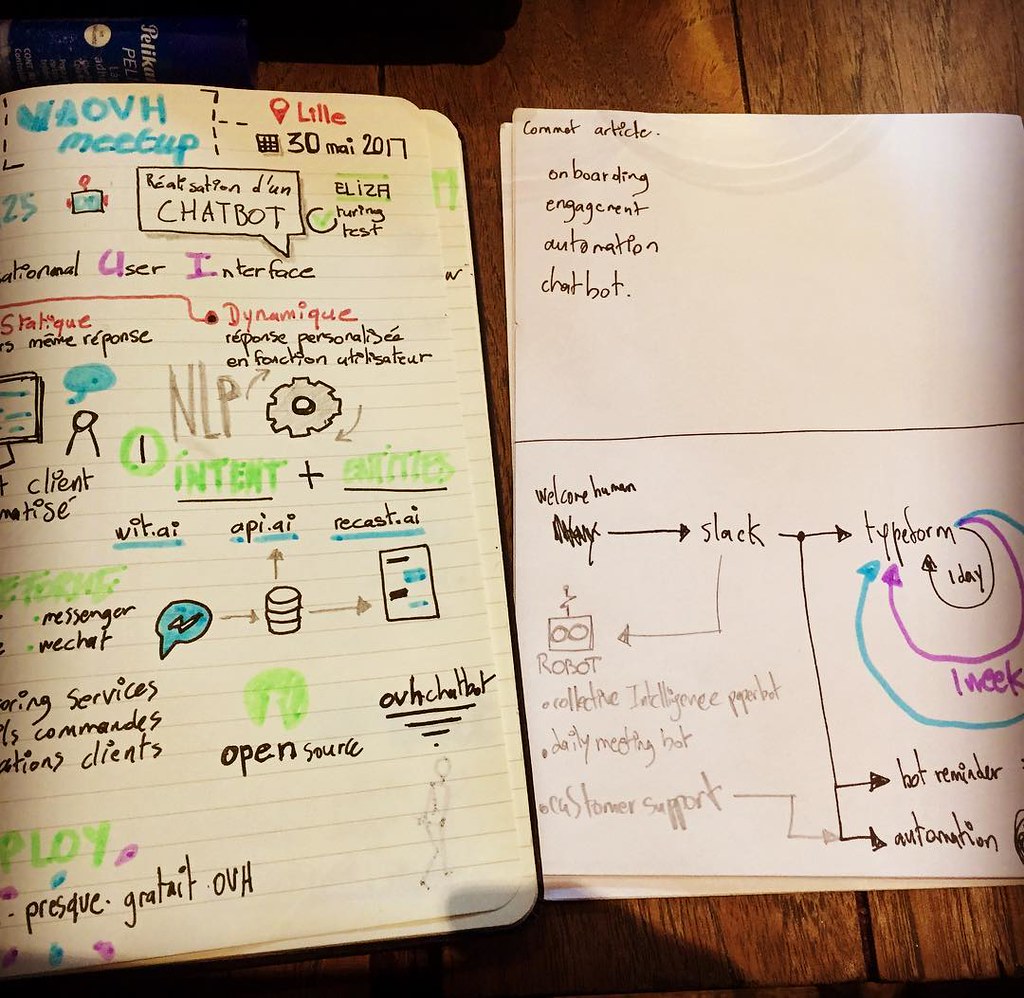 Pelikan
PEL
OVH
meetup
Lille
30 mai 2017
25
Réalisation d'un
CHATBOT
ELIZA
turing
test
User Interface
Statique
même réponse
Dynamique
réponse personalisée
en fonction utilisateur
NLP
1
INTENT + ENTITIES
client
wit.ai
api.ai
recast.ai
• messenger
• wechat
services
commandes
clients
open source
ovhchatbot
PLOY
- presque gratuit OVH
Commot article.
onboarding
engagement
automation
chatbot.
welcome human
slack
typeform
1 day
1 week
ROBOT
• collective Intelligence paperbot
• daily meeting bot
• customer support
bot reminder
automation